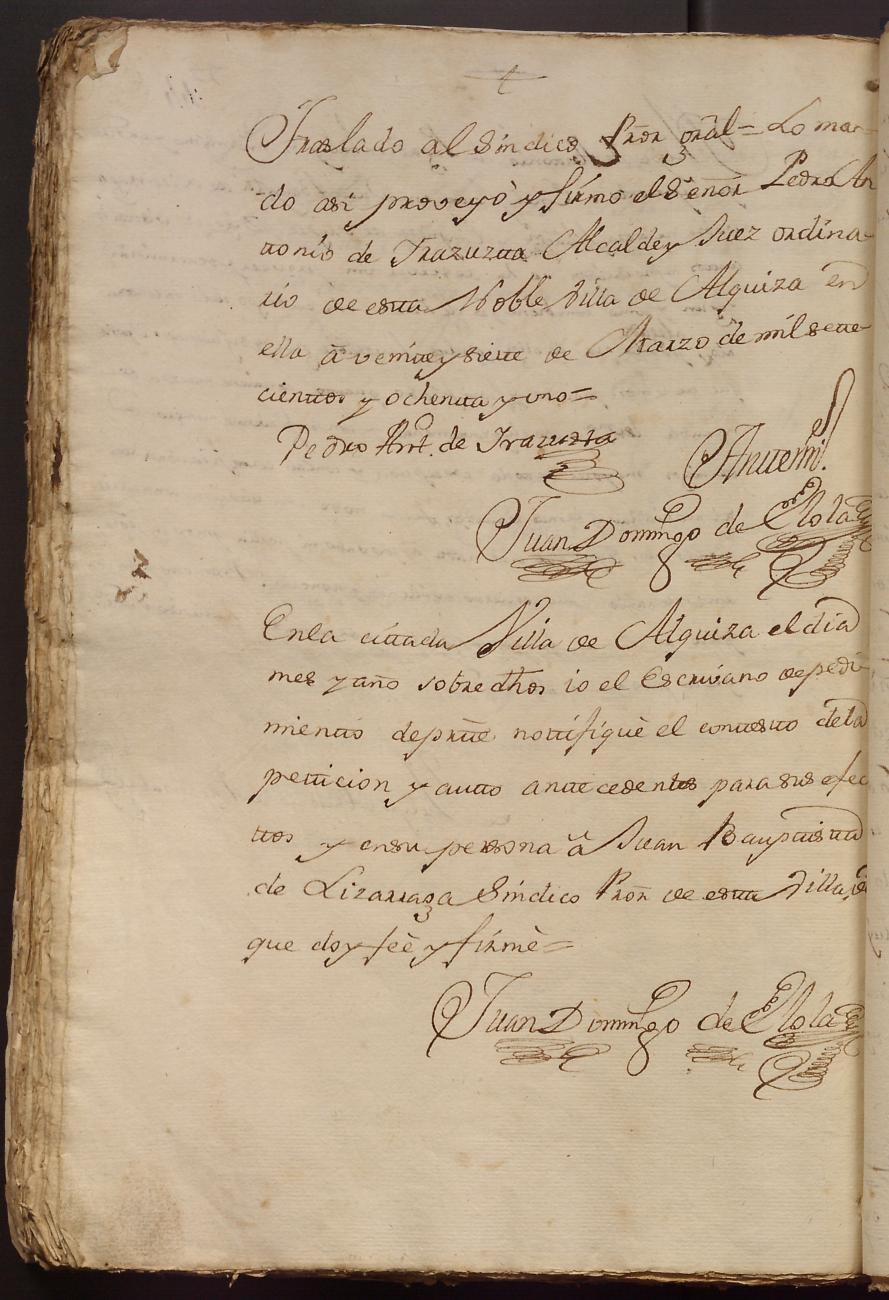 Traslado al Sindico Prōr gral = Lo man-
do asi proveyò y firmo el Señor Pedro An
ttonio de Irazuzta Alcalde y Juez ordina-
rio de esta Noble Villa de Alquiza en
ella â veintte y siette de Marzo de mil sette-
cienttos y ochentta y uno =
Pedro Ant. de Irazuzta
Antte mi.
Juan Domingo de Elola
En la cittada Villa de Alquiza el dia
mes y año sobredhos io el Escrivano de pedi-
mientto de partte nottifiquè el contesto de la
petticion y autto anttecedentes para sus efec
ttos y en su persona â Juan Bauptista
de Lizarraga Sindico Prōr de esta Villa, de
que doy feè y firmè =
Juan Domingo de Elola